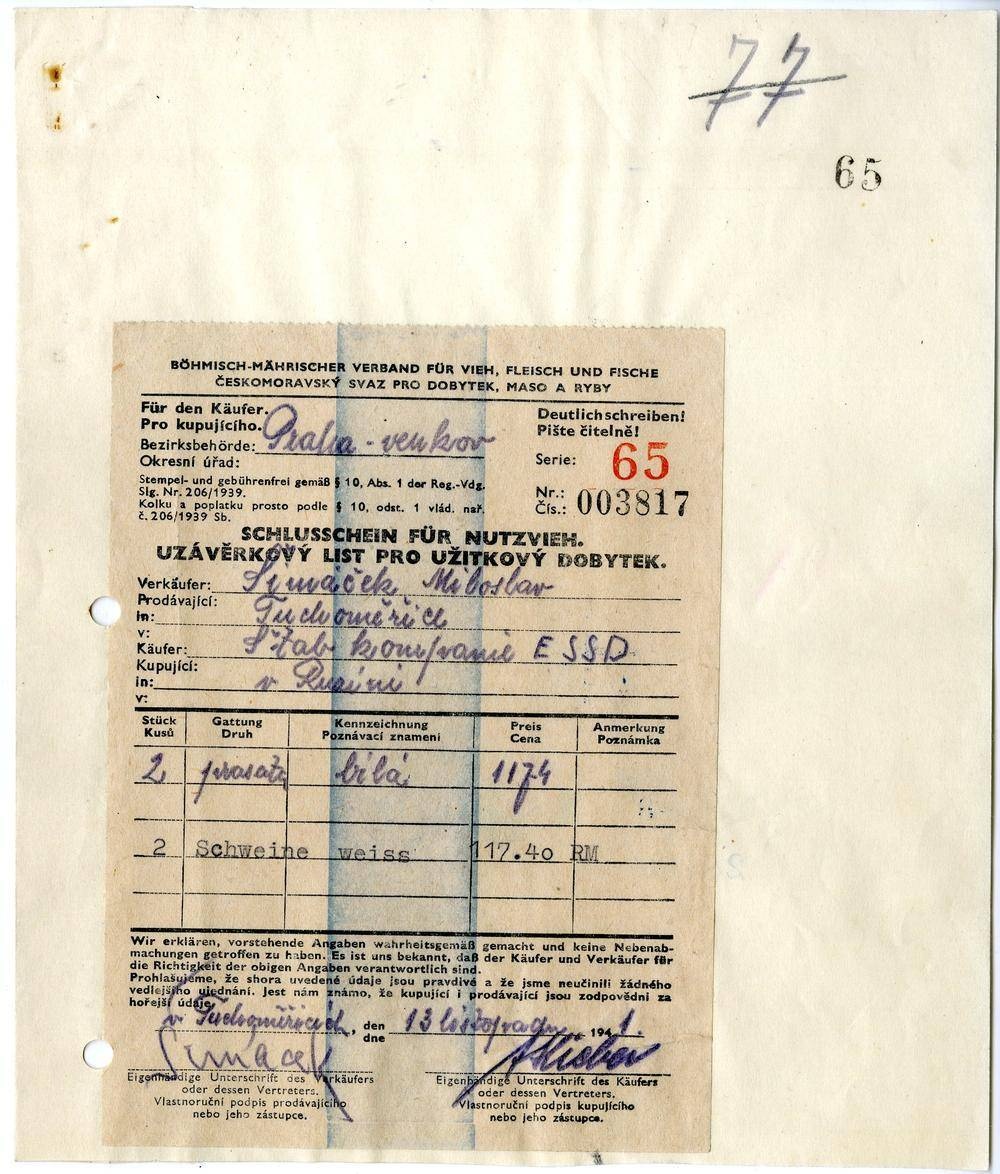 77
65
BÖHMISCH-MÄHRISCHER VERBAND FÜR VIEH, FLEISCH UND FISCHE
ČESKOMORAVSKÝ SVAZ PRO DOBYTEK, MASO A RYBY
Für den Käufer.
Pro kupujícího.
Bezirksbehörde: Praha-venkov
Okresní úřad:
Deutlich schreiben!
Pište čitelně!
Serie: 65
Stempel- und gebührenfrei gemäß § 10, Abs. 1 der Reg.-Vdg.
Slg. Nr. 206/1939.
Kolku a poplatku prosto podle § 10, odst. 1 vlád. nař.
č. 206/1939 Sb.
Nr.:
Čís.: 003817
SCHLUSSCHEIN FÜR NUTZVIEH.
UZÁVĚRKOVÝ LIST PRO UŽITKOVÝ DOBYTEK.
Verkäufer: Šimáček Miloslav
Prodávající:
in: Tuchoměřice
v:
Käufer: Štab kompanie ESSD
Kupující:
in: v Ruzini
v:
Stück Gattung Kennzeichnung Preis Anmerkung
Kusů Druh Poznávací znamení Cena Poznámka
2 prasata bílá 1174
2 Schweine weiss 117.40 RM
Wir erklären, vorstehende Angaben wahrheitsgemäß gemacht und keine Nebenab-
machungen getroffen zu haben. Es ist uns bekannt, daß der Käufer und Verkäufer für
die Richtigkeit der obigen Angaben verantwortlich sind.
Prohlašujeme, že shora uvedené údaje jsou pravdivé a že jsme neučinili žádného
vedlejšího ujednání. Jest nám známo, že kupující i prodávající jsou zodpovědni za
hořejší údaje.
v Tuchoměřicích, den 13 listopadu 1941.
dne
Šimáček
Eigenhändige Unterschrift des Verkäufers
oder dessen Vertreters.
Vlastnoruční podpis prodávajícího
nebo jeho zástupce.
Eigenhändige Unterschrift des Käufers
oder dessen Vertreters.
Vlastnoruční podpis kupujícího
nebo jeho zástupce.